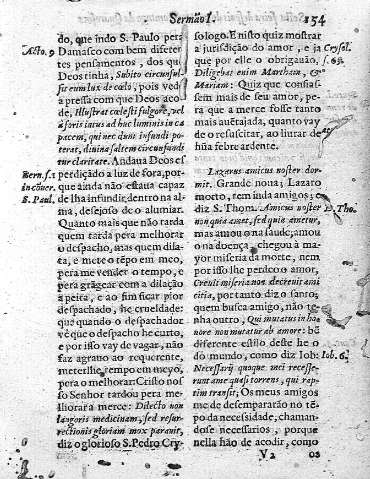 Sermão I.
154
do, que indo S. Paulo pera
Acto. 9
Damasco com bem diferen
tes pensamentos, dos que
Deos tinha, Subito circunful-
sit eum lux de cœlo, pois ved
a pressa com que Deos aco
de, illustrat cœlesti fulgore, vel
à foris intus ad hoc luminis in ca
pacem, qui nec dum infundi po-
terat, divina saltem circunfundi
tur claritate. Andaua Deos es
Bern. s. 1
perdiçado a luz de fora, por-
que ainda não estaua capaz
S. Paul.
de lha infundir, dentro na al-
ma, desejoso de o alumiar.
Quanto mais que não tarda
quem tarda pera melhorar
o despacho, mas quem dila-
ta, e mete o tẽpo em meo,
pera me vender o tempo, e
pera grãgear com a dilação
a peita, e ao fim ficar pior
despachado, he crueldade:
que quando o despachador
vè que o despacho he curto,
e por isso vay de vagar, não
faz agrauo ao requerente,
meterlhe tempo em meyo,
pera o melhorar: Cristo nos
so Senhor tardou pera me-
lhorar a merce: Dilecto non
languoris medicinam, sed resur-
rectionis gloriam mox parauit,
diz o glorioso S. Pedro Cry
sologo. E nisto quiz mostrar
a jurisdição do amor, e ja
Crysol.
que por elle o obrigauão,
s. 63.
Diligebat enim Martham, &
Mariam: Quiz que confias-
sem mais de seu amor, pe-
ra que a merce fosse tanto
mais auetajada, quanto vay
de o resuscitar, ao liurar de
hũa febre ardente.
Lazarus amicus noster dor-
mit. Grande noua; Lazaro
morto, tem inda amigos; e
diz S. Thom. Amicus noster
D. Tho.
nunquã amet, sed quia ametur,
mas amou o na saude, amou
o na doença, chegou à ma-
yor miseria da morte, nem
por isso lhe perdeo o amor,
Creuit miseria nos decreuit ami
citia, por tanto diz o santo,
quem busca amigo, não te-
nha outro, Qui mutatus in ho-
nore non mutatur ab amore: bẽ
diferente estilo deste he o
do mundo, como diz Iob:
Iob. 6.
Necessarij quoque mei recesse-
runt à me quasi torrens, qui rap
tim transit; Os meus amigos
me desempararão no tẽm-
po da necessidade, chaman-
dose necessarios, porque
nella hão de acodir, como
V 2
os